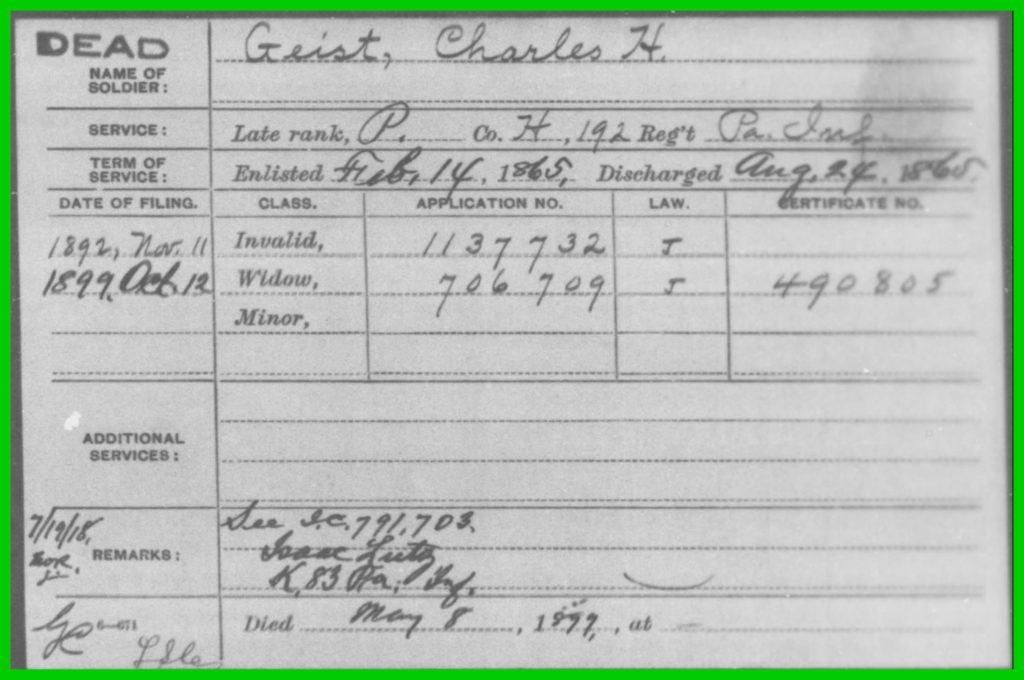 DEAD
NAME OF SOLDIER: Geist, Charles H.
SERVICE: Late rank, P. Co. H, 192 Reg't Pa. Inf.
TERM OF SERVICE: Enlisted Feb. 14, 1865, Discharged Aug. 24, 1865.
DATE OF FILING. CLASS. APPLICATION NO. LAW. CERTIFICATE NO.
1892, Nov. 11 Invalid, 1137732 J
1899, Oct. 12 Widow, 706709 J 490805
Minor,
ADDITIONAL SERVICES:
7/19/18. See I.C. 791,703.
REMARKS: Isaac Lutz
K, 83 Pa. Inf.
6—671 Died May 8, 1899, at —